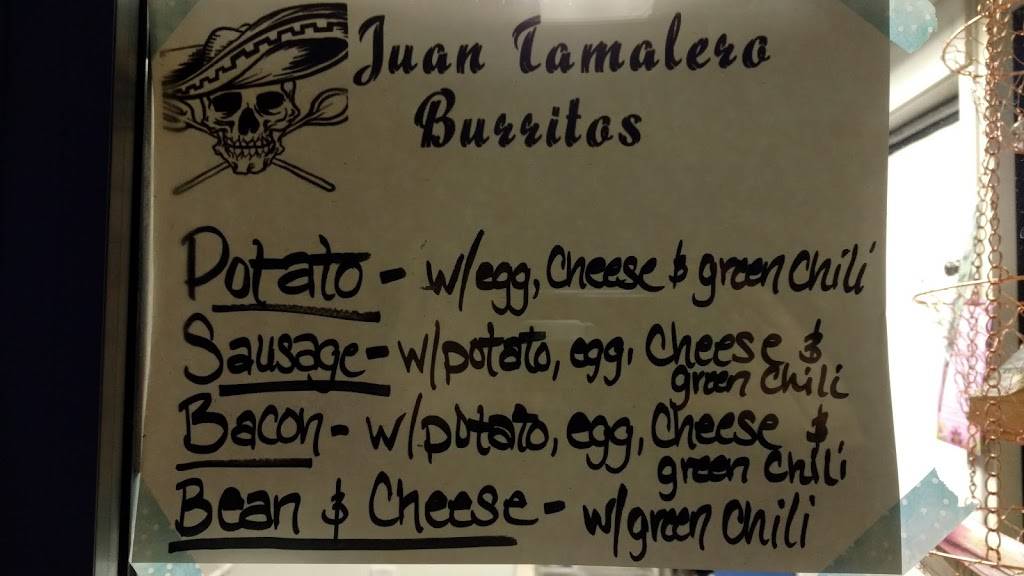 Juan Tamalero
Burritos
Potato - w/egg, Cheese & green Chili
Sausage - w/potato, egg, Cheese &
green Chili
Bacon - w/potato, egg, Cheese &
green Chili
Bean & Cheese - w/green Chili